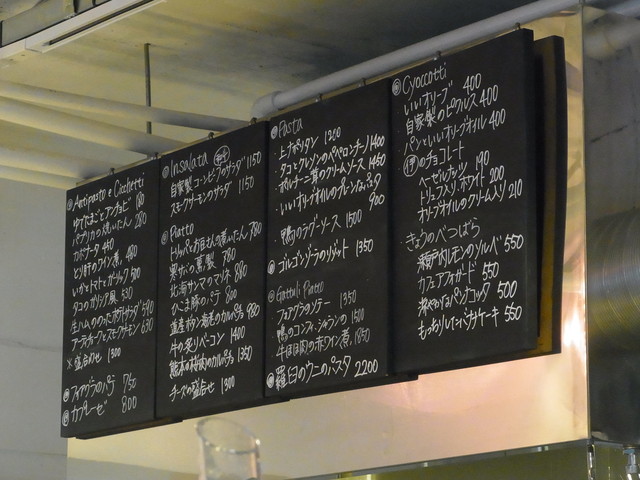 Antipasto e Cicchetti
ゆでたまごとアンチョビ 180
パプリカの焼いたん 280
カポナータ 440
とりきものワイン煮 480
いかとトマトとガリック 500
タコのガリシア風 530
生ハムのったポテトサラダ 590
アーティチョークとスモークサーモン 630
※盛合わせ 1300
フォアグラのパテ 750
カプレーゼ 800
Insalata
自家製コーンビーフのサラダ 1150
スモークサーモンのサラダ 1150
Piatto
トリッパとお豆さんの煮いたん 780
果サバの燻製 780
北海サンマのマリネ 880
のこま豚のパテ 800
980
牛の炙りベーコン 1400
熊本の桜肉のカルパッチョ 1350
チーズの盛合せ 1300
Pasta
・上ナポリタン 1200
タコとクレソンのペペロンチーノ 1400
ポルチーニ茸のクリームソース 1450
・いいオリーブオイルのプレーンなパスタ 900
・鴨のラグーソース 1500
ゴルゴンゾーラのリゾット 1350
Piatto
フォアグラのソテー 1350
鴨のコンフィ、シャランの 1500
牛ほほ肉の赤ワイン煮 1850
羅臼のウニのパスタ 2200
Cyoccotti
いいオリーブ 400
自家製のピクルス 400
パンといいオリーブオイル 400
のチョコレート
ヘーゼルナッツ 190
トリュフ入りホワイト 200
オリーブオイルのクリーム入り 210
・きょうのべつばら
瀬戸内レモンのソルベ 550
カフェアフォガード 550
冷やかなパンナコッタ 500
もっわりしたチーズケーキ 550